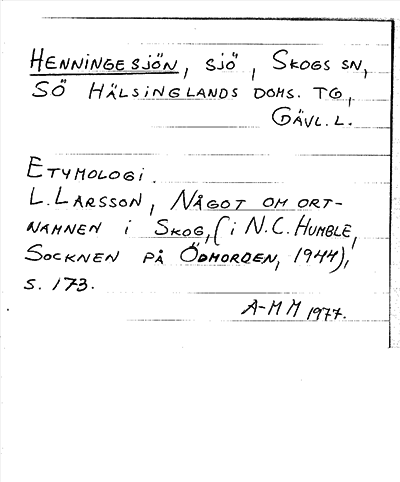 HENNINGESJÖN, SJÖ, SKOGS SN,
SÖ HÄLSINGLANDS DOMS. TG,
GÄVL. L.
ETYMOLOGI.
L. LARSSON, NÅGOT OM ORT-
NAMNEN I SKOG, (i N.C. HUMBLE,
SOCKNEN PÅ ÖDMORDEN, 1944),
S. 173.
A-MM 1977.